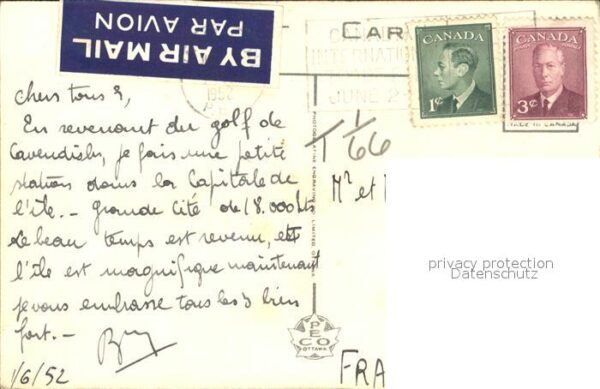 BY AIR MAIL
PAR AVION
CAR
1952
INTERNATIONAL
JUNE 2
CANADA
1¢
CANADA
3¢
chers tous 3,
En revenant du golf de
Cavendish, je fais une petite
station dans la Capitale de
l'île. - grande cité de 18.000 hts
Le beau temps est revenu, et
l'île est magnifique maintenant
je vous embrasse tous les 3 bien
fort. -
1/6/52
T 1/66
Mr et
FRA
PHOTOGELATINE ENGRAVING CO. LIMITED OTTAWA
PECO
OTTAWA
privacy protection
Datenschutz